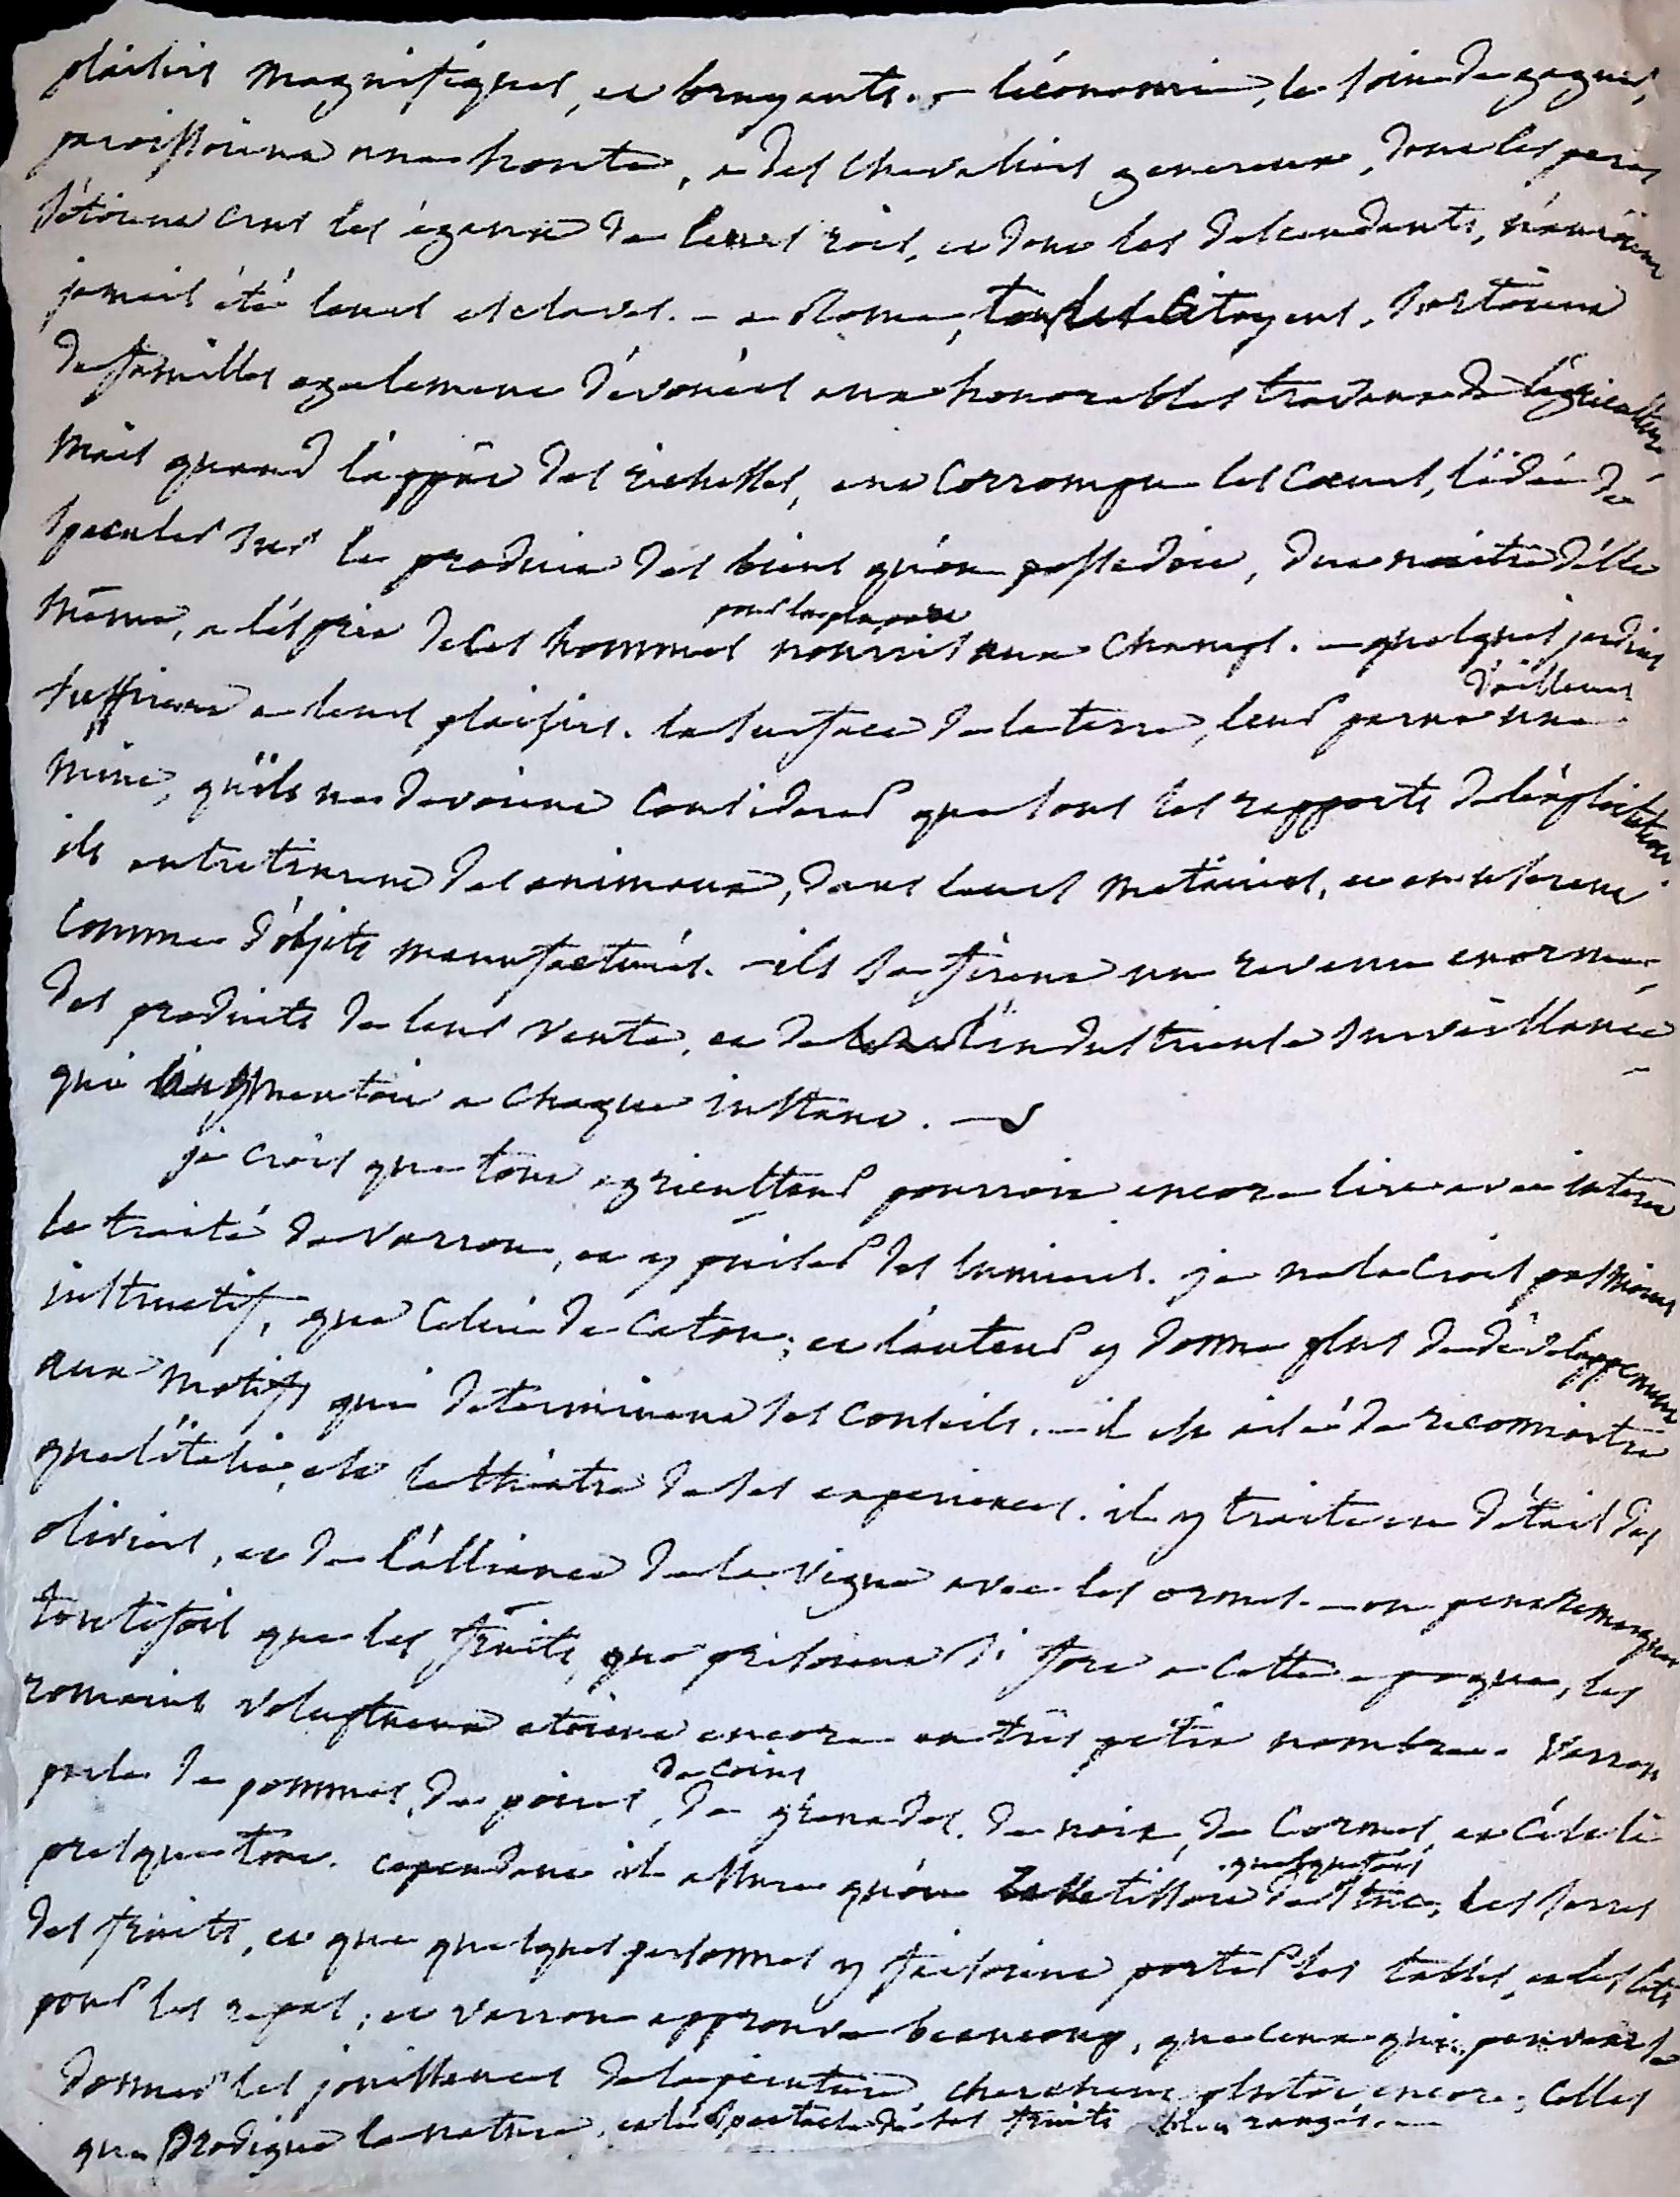 plaisirs magnifiques, et bruyants. - l'économie, le soin de gagner,
paroissoient une honte, a des chevaliers genereux, dont les peres
s'étoient crus les égaux de leurs rois, et dont les descendants, n'avoient
jamais été leurs esclaves. - a Rome, tous les citoyens, sortoient
de familles egalement dévouées aux honorables travaux de l'agriculture,
mais quand l'appât des richesses, eut corrompu les cœurs, l'idée de
speculer sur le produit des biens qu'on possedoit, dut naitre d'elle
même, a l'esprit de ces hommes nourris pour la plupart aux champs. - quelques jardins
suffirent a leurs plaisirs. la surface de la terre, leur parut d'ailleurs une
mine, qu'ils ne devoient considerer que sous les rapports de l'exploitation.
ils entretinrent des animaux, dans leurs metairies, et en userent
comme d'objets manufacturés. - ils se firent un revenu enorme,
des produits de leur vente, et de l'industrieuse surveillance
qui l'augmentoit a chaque instant. -
je crois que tout agriculteur pourroit encore lire avec interêt
le traité de Varron, et y puiser des lumieres. je ne le crois pas moins
instructif, que celui de Caton; et l'auteur y donne plus de développement
aux motifs qui determinent ses conseils. - il est aisé de reconnoitre
que l'italie, est le théatre de ses experiences. il y traite en détail des
oliviers, et de l'alliance de la vigne avec les ormes. - on peut remarquer
toutefois que les fruits, que prisoient si fort a cette epoque, les
romains voluptueux etoient encore en très petit nombre. Varron
parle de pommes, de poires, de coins de grenades. de noix, de cormes, et c'est là
presque tout. cependant il assure qu'on quelquefois de stuc, les serres
des fruits, et que quelques personnes y faisoient porter les tables, et les lits
pour les repas; et varron approuve beaucoup, que ceux qui peuvent se
donner les jouissances de la peinture cherchent plutot encore, celles
que prodigue la nature, et le spectacle de ses fruits bien rangés. -